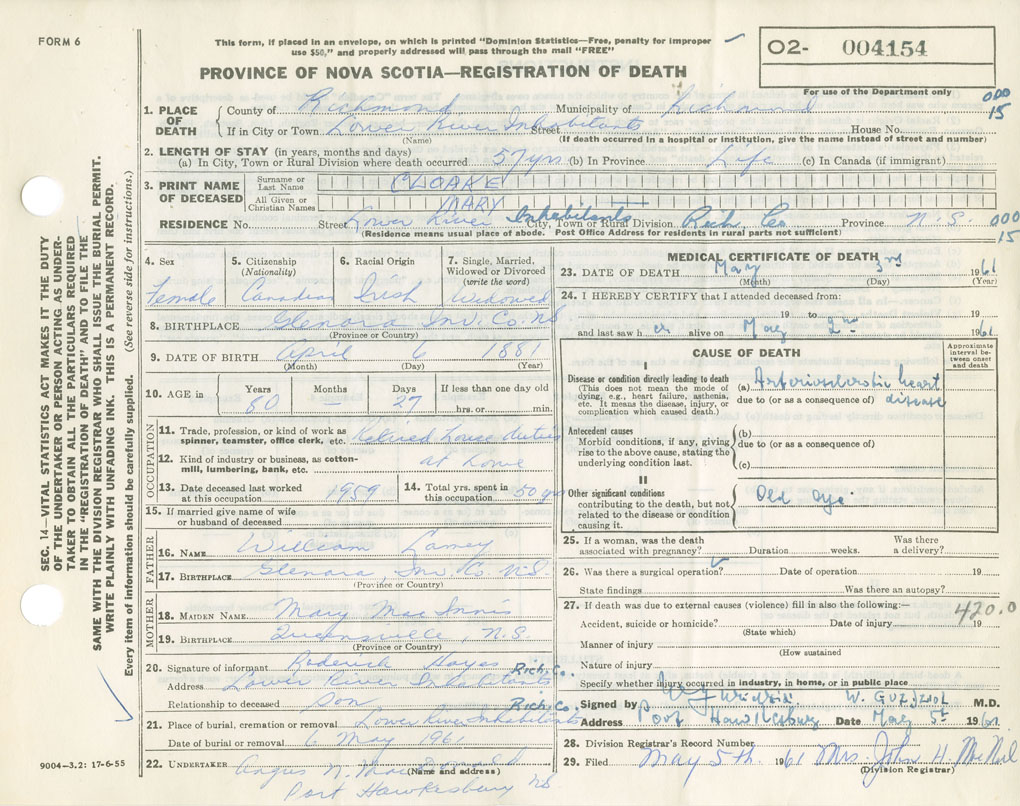 FORM 6
This form, if placed in an envelope, on which is printed "Dominion Statistics—Free, penalty for improper
use $50," and properly addressed will pass through the mail "FREE"
O2- 004154
For use of the Department only
PROVINCE OF NOVA SCOTIA—REGISTRATION OF DEATH
1. PLACE OF DEATH County of Richmond Municipality of Richmond 000 15
If in City or Town Lower River Inhabitants Street House No.
(Name) (If death occurred in a hospital or institution, give the name instead of street and number)
2. LENGTH OF STAY (in years, months and days)
(a) In City, Town or Rural Division where death occurred 57 yrs (b) In Province Life (c) In Canada (if immigrant)
3. PRINT NAME OF DECEASED
Surname or Last Name CLOAKE
All Given or Christian Names MARY
RESIDENCE No. Street Lower River Inhabitants City, Town or Rural Division Rich Co Province N.S. 000 15
(Residence means usual place of abode. Post Office Address for residents in rural parts not sufficient)
4. Sex Female
5. Citizenship (Nationality) Canadian
6. Racial Origin Irish
7. Single, Married, Widowed or Divorced (write the word) Widowed
8. BIRTHPLACE Glenora Inv. Co. NS
(Province or Country)
9. DATE OF BIRTH April 6 1881
(Month) (Day) (Year)
10. AGE in Years 80 Months — Days 27 If less than one day old hrs. or min.
OCCUPATION
11. Trade, profession, or kind of work as spinner, teamster, office clerk, etc. Retired house duties
12. Kind of industry or business, as cotton-mill, lumbering, bank, etc. at home
13. Date deceased last worked at this occupation 1959
14. Total yrs. spent in this occupation 50 yrs
15. If married give name of wife or husband of deceased
FATHER
16. NAME William Lamey
17. BIRTHPLACE Glenora, Inv. Co. N.S.
(Province or Country)
MOTHER
18. MAIDEN NAME Mary Mac Innis
19. BIRTHPLACE Queensville, N.S.
(Province or Country)
20. Signature of informant Roderick Hayes
Address Lower River Inhabitants Rich. Co.
Relationship to deceased son
21. Place of burial, cremation or removal Lower River Inhabitants Rich. Co.
Date of burial or removal 6 May 1961
22. UNDERTAKER Angus N.
(Name and address)
Port Hawkesbury NS.
MEDICAL CERTIFICATE OF DEATH
23. DATE OF DEATH May 3rd 1961
(Month) (Day) (Year)
24. I HEREBY CERTIFY that I attended deceased from:
19 to 19
and last saw her alive on May 2nd 1961
CAUSE OF DEATH
Approximate interval between onset and death
I
Disease or condition directly leading to death
(This does not mean the mode of dying, e.g., heart failure, asthenia, etc. It means the disease, injury, or complication which caused death.)
(a) Arteriosclerotic heart disease
due to (or as a consequence of)
Antecedent causes
Morbid conditions, if any, giving rise to the above cause, stating the underlying condition last.
(b)
due to (or as a consequence of)
(c)
II
Other significant conditions contributing to the death, but not related to the disease or condition causing it.
Old age
25. If a woman, was the death associated with pregnancy? Duration weeks. Was there a delivery?
26. Was there a surgical operation? Date of operation 19
State findings Was there an autopsy?
27. If death was due to external causes (violence) fill in also the following:— 420.0
Accident, suicide or homicide? Date of injury 19
(State which)
Manner of injury
(How sustained)
Nature of injury
Specify whether injury occurred in industry, in home, or in public place
Signed by M.D.
Address Port Hawkesbury Date May 5th 1961
28. Division Registrar's Record Number
29. Filed May 5th 1961 Mrs. John H. McNeil
(Division Registrar)
SEC. 14—VITAL STATISTICS ACT MAKES IT THE DUTY
OF THE UNDERTAKER OR PERSON ACTING AS UNDER-
TAKER TO OBTAIN ALL THE PARTICULARS REQUIRED
IN THE "REGISTRATION OF DEATH" AND TO FILE THE
SAME WITH THE DIVISION REGISTRAR WHO SHALL ISSUE THE BURIAL PERMIT.
WRITE PLAINLY WITH UNFADING INK. THIS IS A PERMANENT RECORD.
Every item of information should be carefully supplied. (See reverse side for instructions.)
9004—3.2: 17-6-55